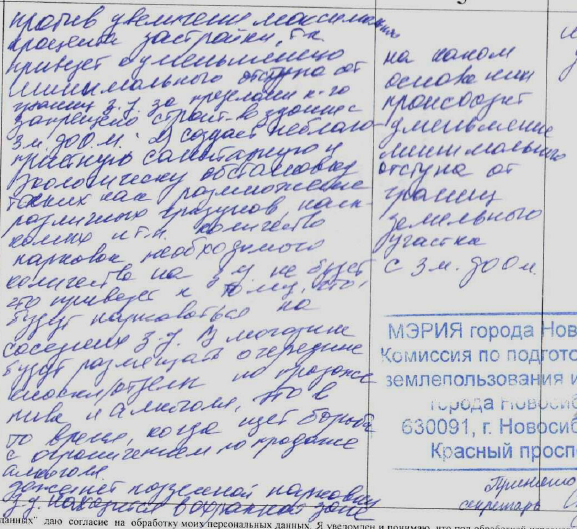 против увеличение максимальн
процента застройки, т.к.
приведет к уменьшению
минимального отступа от
границ з.у. за пределами к-го
запрещено строит-в здание с
3 м. до 0 м. создает неблаго-
приятную санитарную и
экологическу обстановку
таких как размножение
различного грызунов, насе-
комых и т.п. количество
парковок необходимого
количества на з.у не будет
это приведет к тому, что
будут парковаться на
соседних з.у. В магазине
будут размещать очередные
киоски/отделы по продаже
пива и алкоголя, это в
то время, когда идет борьба
с ограничением по продаже
алкоголя.
подземной парковки
з.у. находится в охранной зоне
на каком
основании
происходит
уменьшение
минимального
отступа от
границ
земельного
участка
с 3 м. до 0 м.
МЭРИЯ города Нов
Комиссия по подгото
землепользования и
города Новосиб
630091, г. Новосиб
Красный просп
Принято
секретарь
данных" даю согласие на обработку моих персональных данных. Я уведомлен и понимаю, что под обработкой